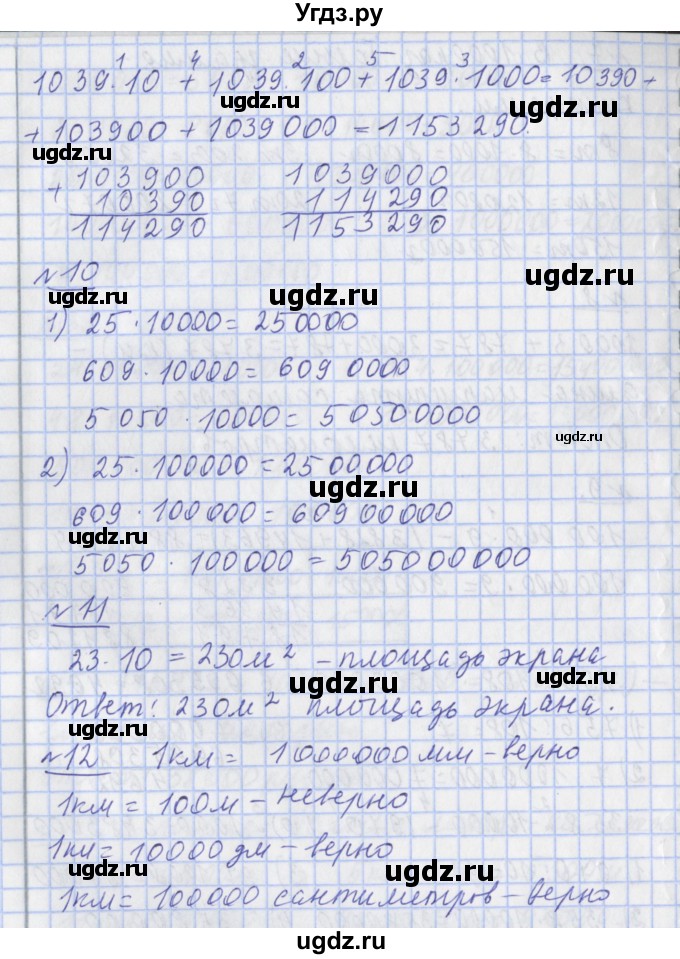 Угдз.ру
1039·10 + 1039·100 + 1039·1000 = 10390 +
1 4 2 5 3
+ 103900 + 1039000 = 1153290.
ugdz.ru ugdz.ru ugdz.ru
+ 103900 1039000
10390 114290
114290 1153290
№10
ugdz.ru ugdz.ru ugdz.ru
1) 25·10000 = 250000
609·10000 = 6090000
5050·10000 = 50500000
ugdz.ru
2) 25·100000 = 2500000
ugdz.ru
609·100000 = 60900000
ugdz.ru
5050·100000 = 505000000
№11
23·10 = 230м² – площадь экрана
ugdz.ru ugdz.ru
Ответ: 230м² площадь экрана.
ugdz.ru
№12 1км = 1000000мм – верно
1км = 100м – неверно
1км = 10000дм – верно
ugdz.ru ugdz.ru
1км = 100000 сантиметров – верно
ugdz.ru